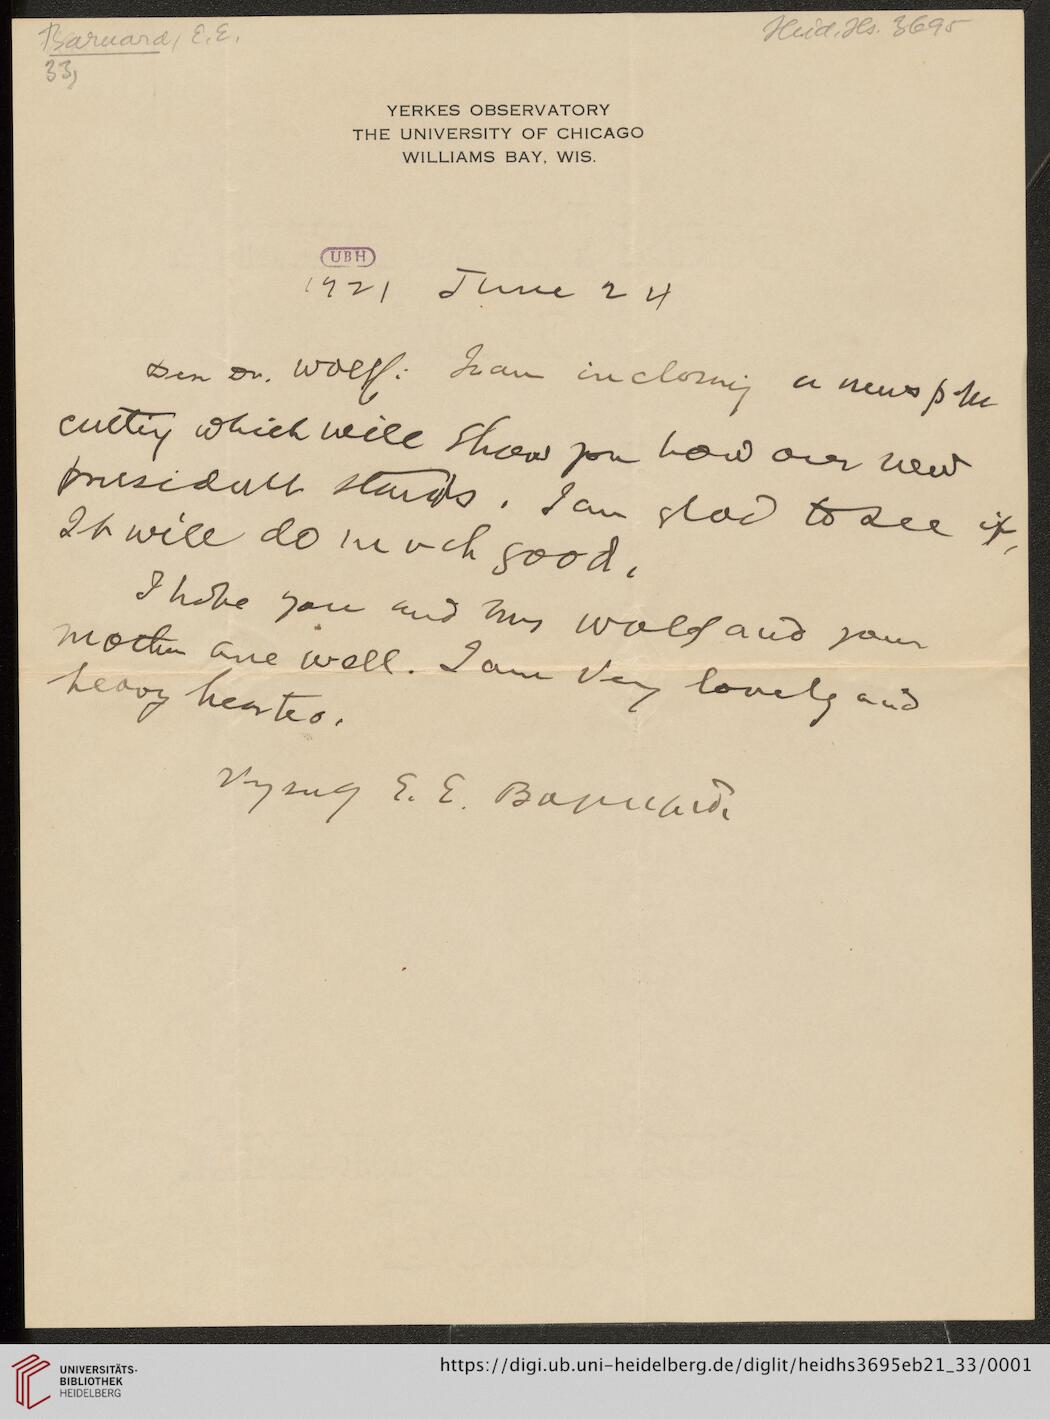 Barnard, E.E.
Heid. Hs. 3695
33,
YERKES OBSERVATORY
THE UNIVERSITY OF CHICAGO
WILLIAMS BAY, WIS.
UBH
1921 June 24
Dear Dr. Wolf: I am inclosing a news
cutting which will show you how our new
president stands. I am glad to see it,
It will do much good.
I hope you and Mrs Wolf and your
mother are well. I am very lonely and
heavy hearted.
E. E. Barnard.
UNIVERSITÄTS-
BIBLIOTHEK
HEIDELBERG
https://digi.ub.uni-heidelberg.de/diglit/heidhs3695eb21_33/0001